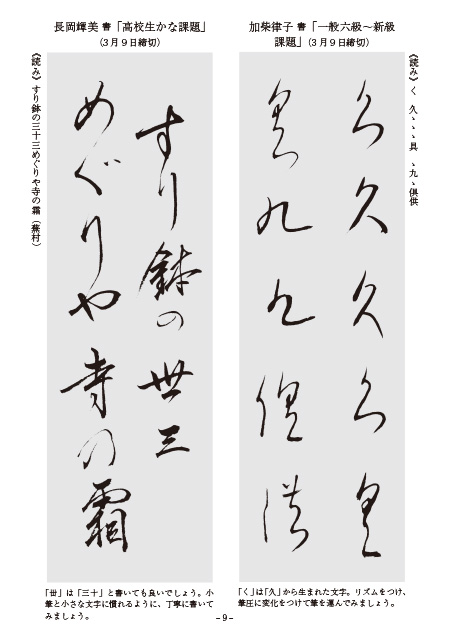 加柴律子 書「一般六級～新級
課題」（３月９日締切）
《読み》く 久ゝゝゝ具 ゝ九ゝ倶供
久久久久具
具九九倶供
「く」は「久」から生まれた文字。リズムをつけ、
筆圧に変化をつけて筆を運んでみましょう。
長岡輝美 書「高校生かな課題」
（３月９日締切）
すり鉢の丗三
めぐりや寺の霜
《読み》すり鉢の三十三めぐりや寺の霜（蕪村）
「丗」は「三十」と書いても良いでしょう。小
筆と小さな文字に慣れるように、丁寧に書いて
みましょう。
- 9 -